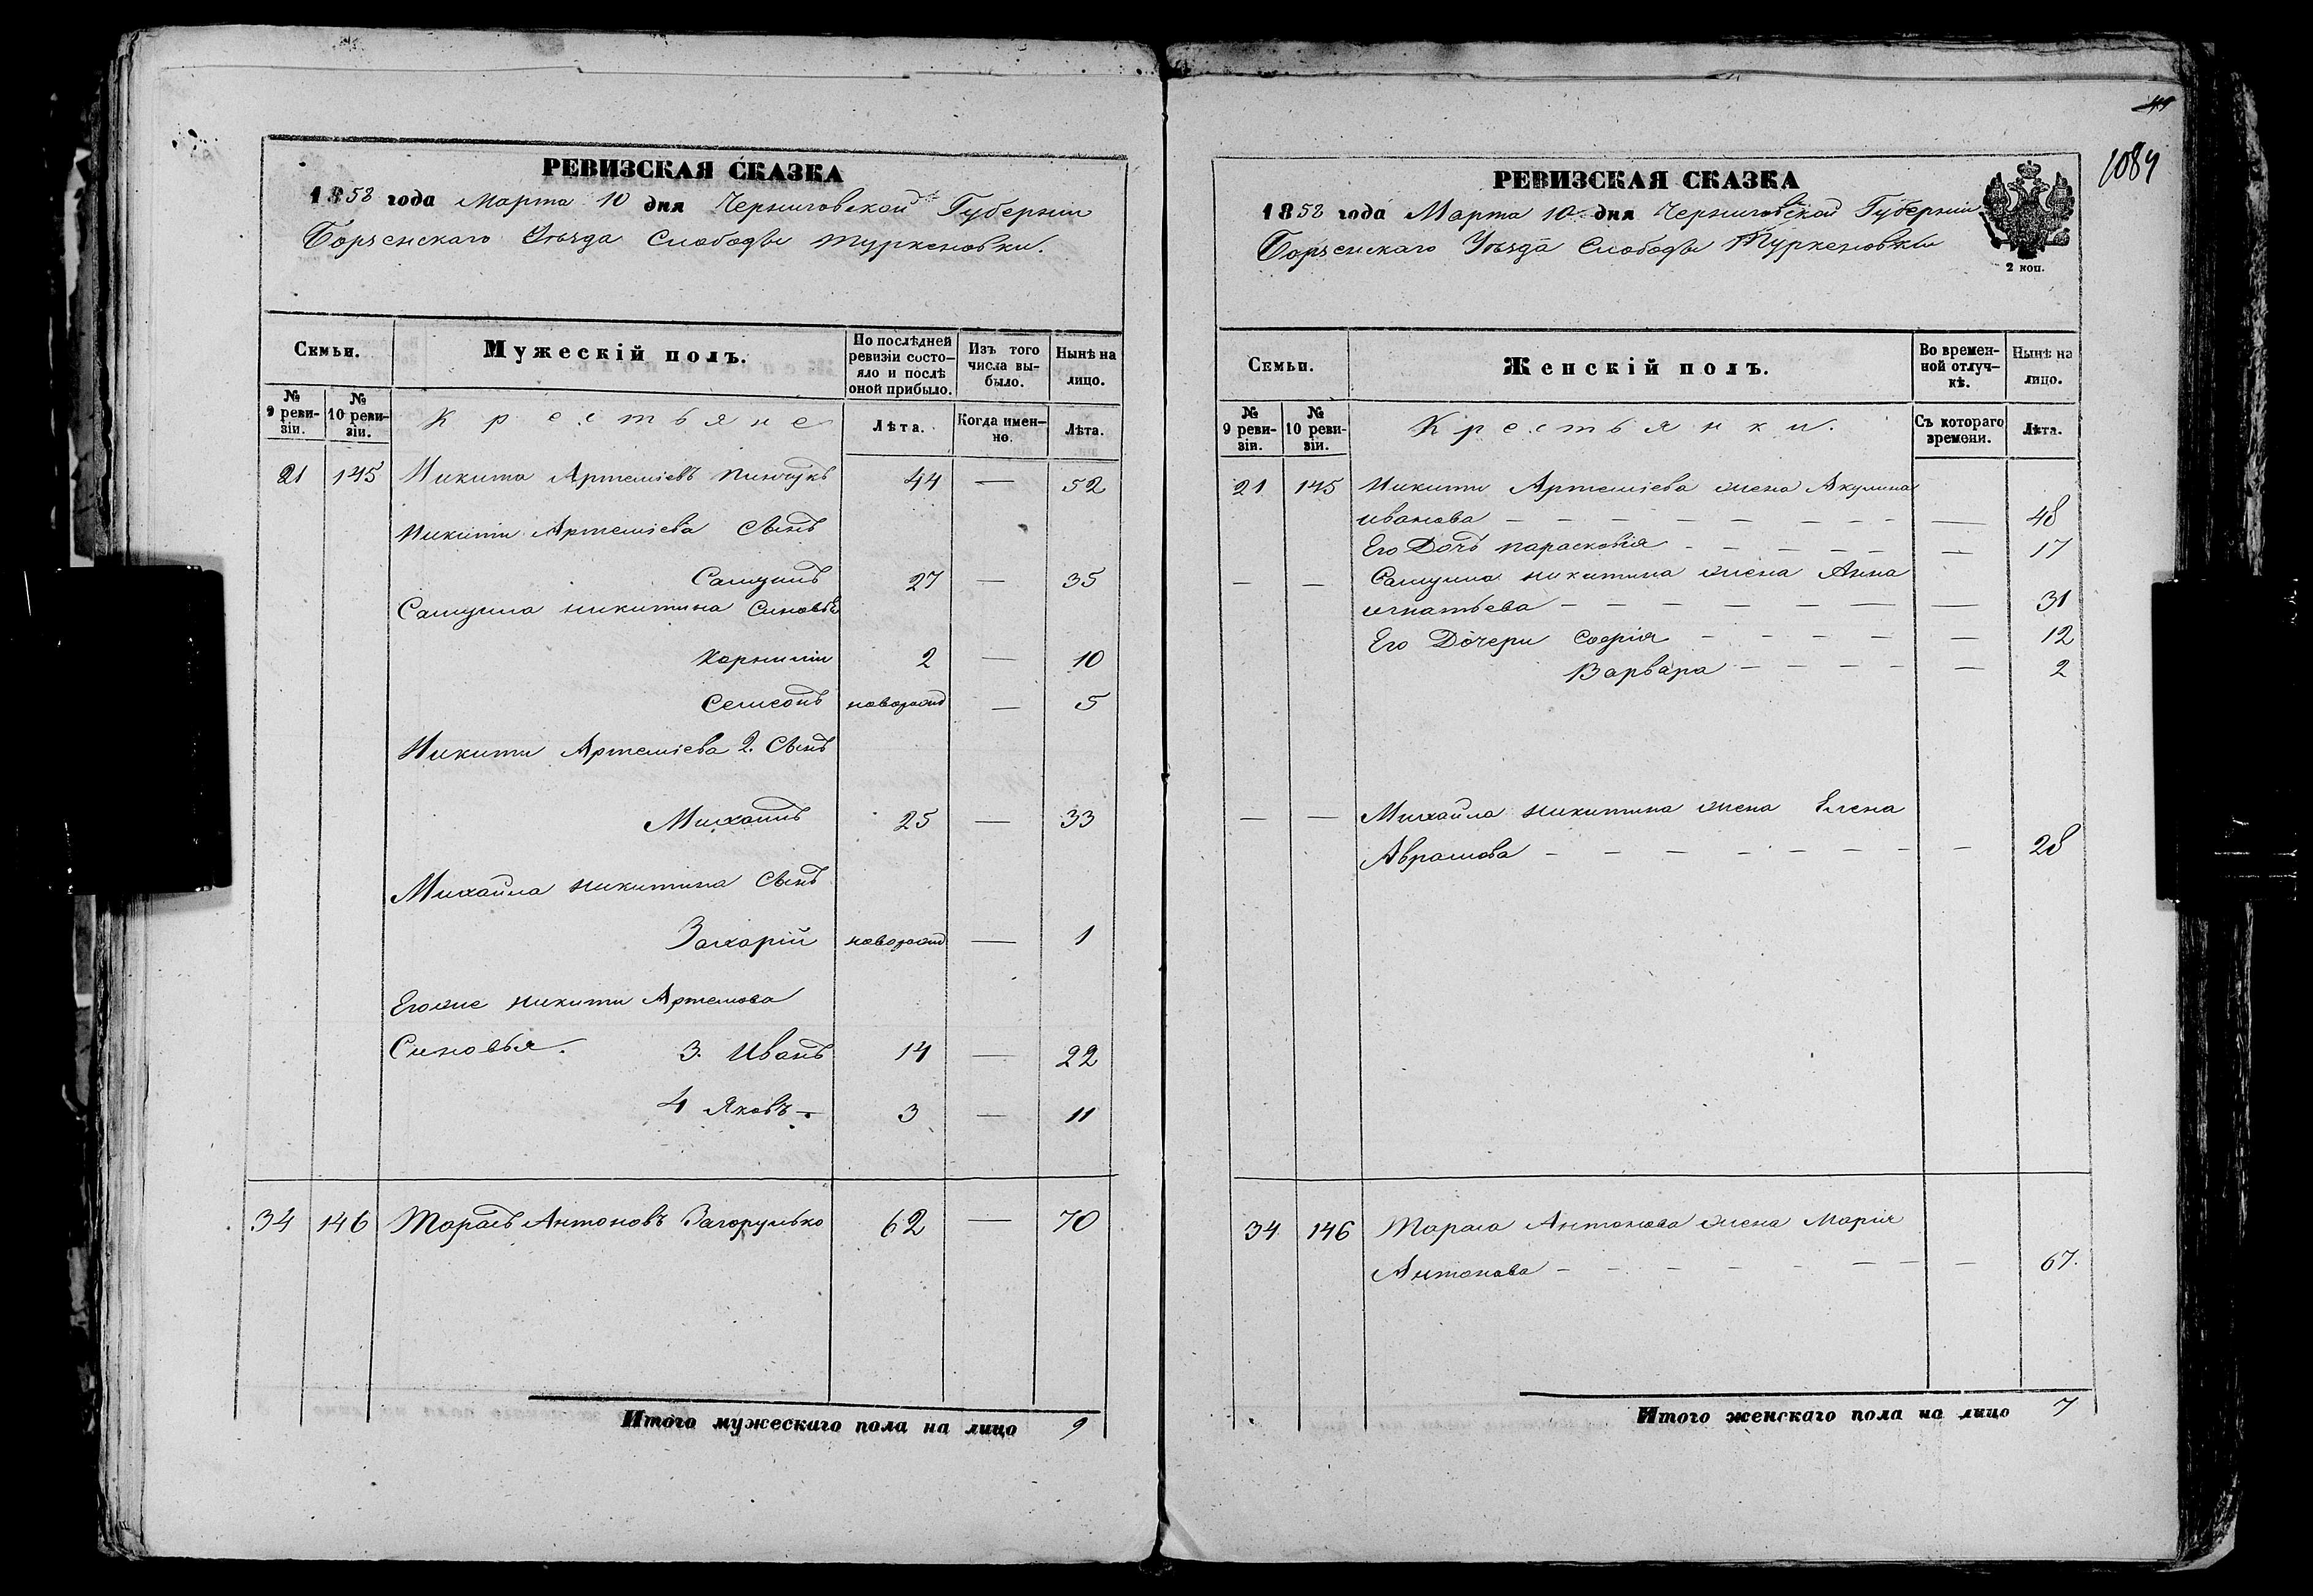 РЕВИЗСКАЯ СКАЗКА
1858 года Марта 10 дня Черниговской Губерніи
Борзенскаго Уѣзда Слободы Туркеновки.
Семьи. Мужескій полъ. По послѣдней ревизіи состояло и послѣ оной прибыло. Изъ того числа выбыло. Нынѣ на лицо.
№ 9 ревизіи. № 10 ревизіи. Крестьяне Лѣта. Когда именно. Лѣта.
21 145 Никита Артеміевъ Пинчукъ 44 — 52
Никиты Артеміева Сынъ
Самуилъ 27 — 35
Самуила Никитина Синовья
Корнилій 2 — 10
Семенъ новорожд — 5
Никиты Артеміева 2. Сынъ
Михаилъ 25 — 33
Михайла Никитина Сынъ
Захарій новорожд — 1
Егоже Никиты Артемова
Синовья. 3. Иванъ 14 — 22
4 Яковъ — 3 — 11
34 146 Тарасъ Антоновъ Загорулько 62 — 70
Итого мужескаго пола на лицо 9
1084
РЕВИЗСКАЯ СКАЗКА
1858 года Марта 10 дня Черниговской Губерніи
Борзенскаго Уѣзда Слободы Туркеновки
2 коп.
Семьи. Женскій полъ. Во временной отлучкѣ. Нынѣ на лицо.
№ 9 ревизіи. № 10 ревизіи. Крестьянки. Съ котораго времени. Лѣта.
21 145 Никиты Артеміева жена Акулина
Иванова — — 48
Его Дочь Парасковія — — 17
— — Самуила Никитина жена Анна
Игнатьева — — 31
Его Дочери Софія — — 12
Варвара — — 2
— — Михайла Никитина жена Елена
Аврамова — — 28
34 146 Тараса Антонова жена Марія
Антонова — — 67.
Итого женскаго пола на лицо 7